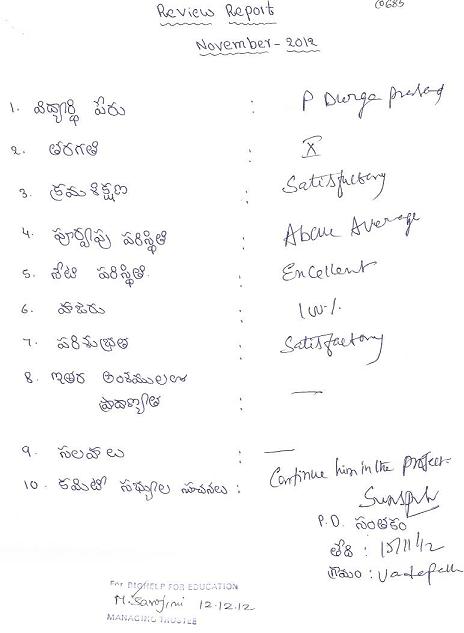 Review Report
November - 2012
1. విద్యార్థి పేరు : P Durga prasad
2. తరగతి : X
3. క్రమశిక్షణ : Satisfactory
4. పూర్వపు పరిస్థితి : Above Average
5. నేటి పరిస్థితి : Excellent
6. హాజరు : 100%
7. పరిశుభ్రత : Satisfactory
8. ఇతర అంశములలో
ప్రావీణ్యత : —
9. సలహాలు : —
10. కమిటీ సభ్యుల సూచనలు : Continue him in the project.
P.D. సంతకం
తేది : 15/11/12
గ్రామం :
For BIGHELP FOR EDUCATION
M. Sarojini 12.12.12
MANAGING TRUSTEE